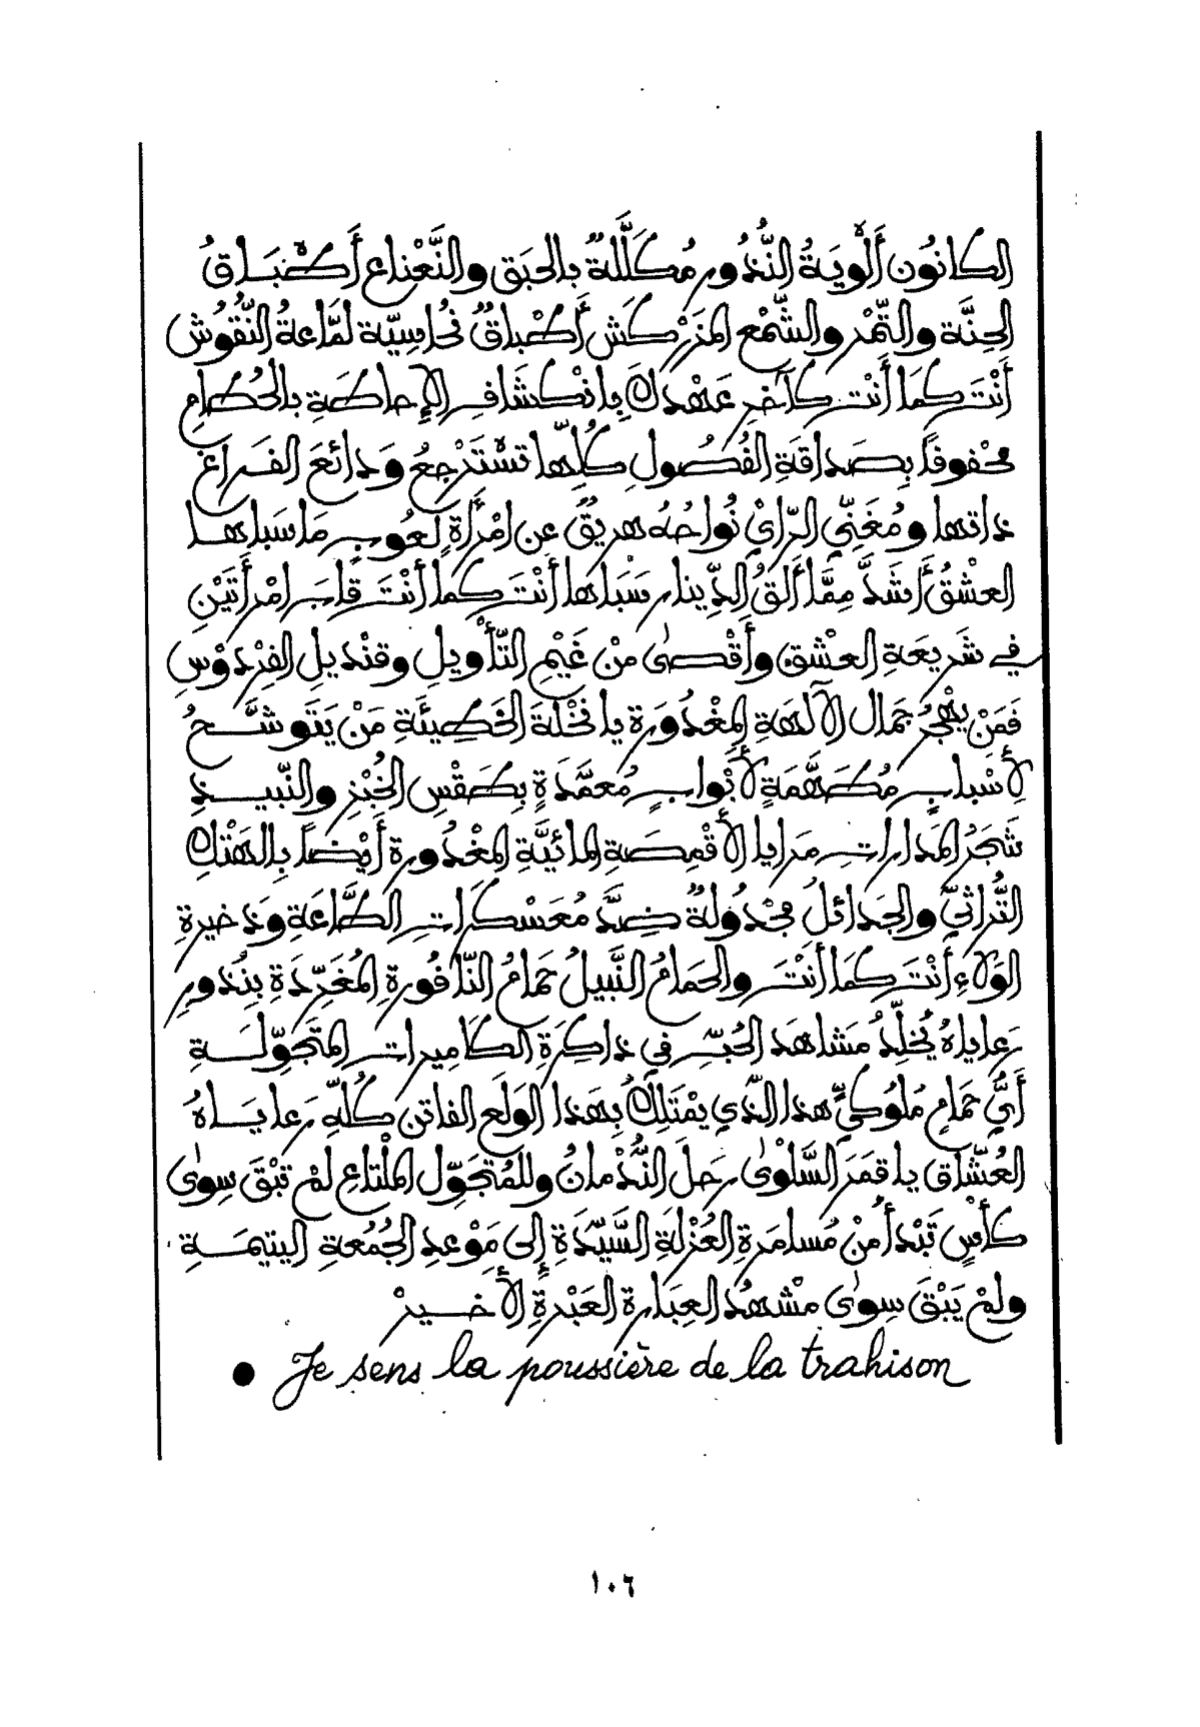 الكانُون أَلْوِيَةُ النُّذُور مُكَلَّلَةٌ بالحَبَق والنَّعْناع أَطْبَاقُ
الحِنَّة والتَّمْر والشَّمْع المُزَرْكَش أَطْباقٌ نُحاسِيّة لمَّاعةُ النُّقُوش
أَنْتَ كَمَا أَنْتَ كآخَرِ عَهْدِكَ بِانْكشَافِ الإِحاطَةِ بالحُطَامِ
محْفوفاً بِصَداقَةِ الفُصُولِ كُلِّها تسْتَرْجِعُ وَدائعَ الفَراغ
ذاتها ومُغَنِّي الرّايْ نُواحُهُ هرِيقٌ عن امْرَأَةٍ لعُوبٍ مَا سَباها
العشْقُ أَشَدَّ مِمَّا أَلَقُ الدِّينار سَبَاها أَنْتَ كما أَنْتَ قابَ امْرأَتَيْنِ
في شَريعَةِ العشْقِ وأَقْصىٰ منْ غَيْمِ التّأْويلِ وقنْديلِ الفِرْدوْسِ
فَمَنْ يهْجُرُ جَمال الآلهَةِ المغْدُورَة يا نَخْلَةَ الخَطِيئَةِ مَنْ يَتَوشَّحُ
لأَسْبابٍ مُطَهَّمَةٍ لأَبْوابٍ مُعمَّدَةٍ بِطَقْسِ الخُبْزِ والنّبيذِ
شَجَرُ المَداراتِ مَرايا الأَقْمِصَةِ المائيَّةِ المغْدُورة أَيْضاً بِالهَتْكِ
التُّراثيِّ والجَدائلُ مجْدُولةٌ ضِدَّ مُعَسْكَراتِ الطَّاعَةِ وَذخيرةِ
الوَلاءِ أَنْتَ كَمَا أَنْتَ والحَمامُ النَّبيلُ حَمامُ النّافُورةِ المُغَرِّدَةِ بِنُذورِ
رَعاياهُ يُخلِّدُ مَشاهدَ الحُبِّ في ذاكِرَةِ الكامِيرات المتَجَوِّلَةِ
أَيُّ حَمامٍ مُلُوكيٍّ هذا الّذي يمْتَلِكُ بِهَذا الوَلَع الفاتن كُلِّهِ رَعايَاهُ
العُشّاق يا قمَرَ السَّلْوىٰ رَحَلَ النُّدْمانُ وللمُتَجَوِّل المُلْتاعِ لمْ تبْقَ سِوىٰ
كأْسٍ تَبْدأُ منْ مُسامَرةِ العُزْلَةِ السَّيِّدَةِ إلى مَوْعدِ الجُمُعةِ اليتيمَةِ
ولمْ يَبْقَ سِوىٰ مشْهدُ العِبَارة العَبْرةِ الأَخيرْ
Je sens la poussière de la trahison ●
١٠٦